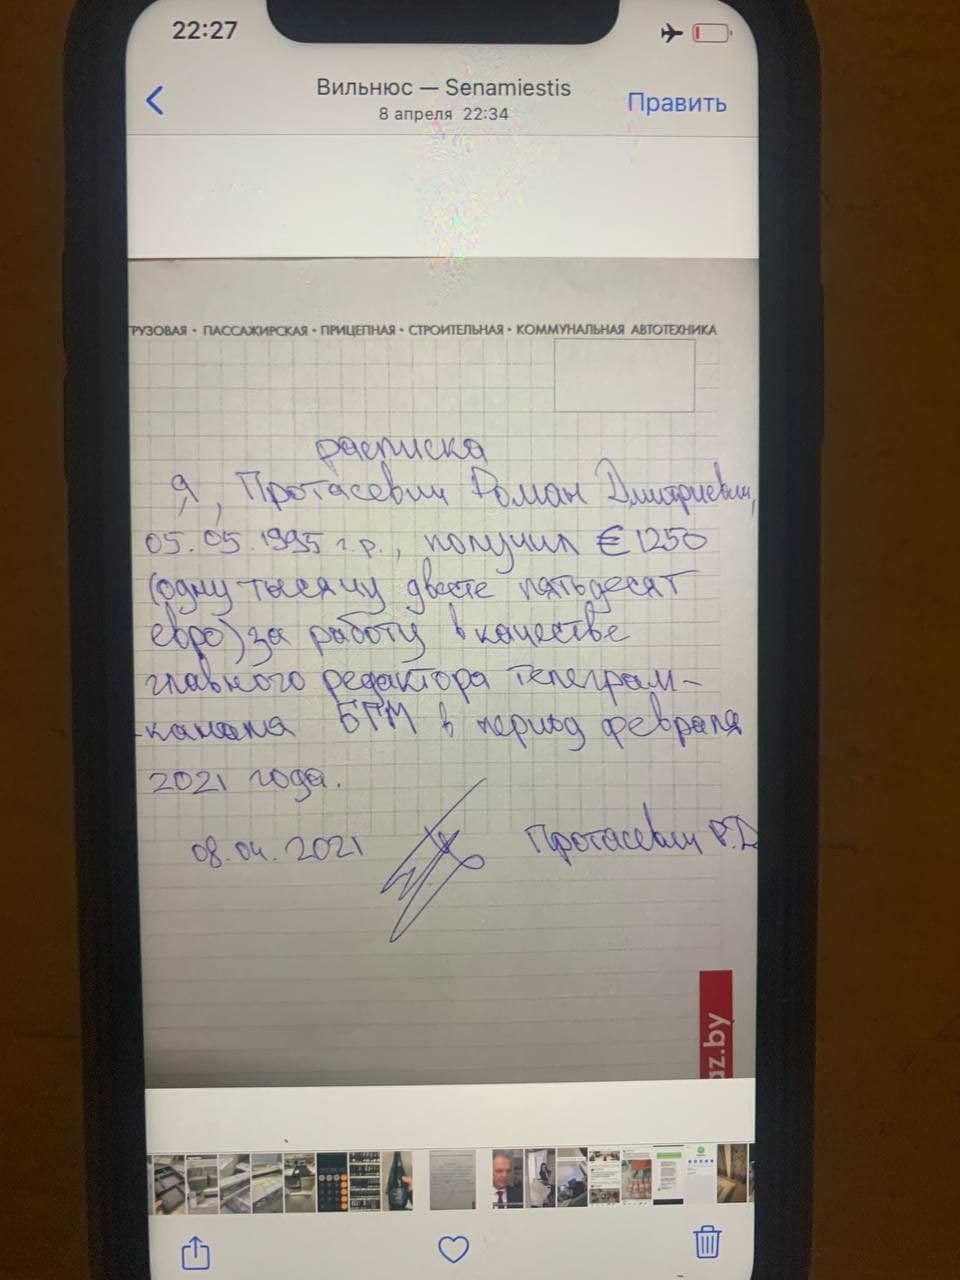 22:27
Вильнюс — Senamiestis
8 апреля 22:34
Править
РУЗОВАЯ • ПАССАЖИРСКАЯ • ПРИЦЕПНАЯ • СТРОИТЕЛЬНАЯ • КОММУНАЛЬНАЯ АВТОТЕХНИКА
расписка
Я, Протасевич Роман Дмитриевич,
05.05.1995 г.р., получил €1250
(одну тысячу двести пятьдесят
евро) за работу в качестве
главного редактора Телеграм-
-канала БГМ в период февраля
2021 года.
08.04.2021 Протасевич Р.Д
az.by